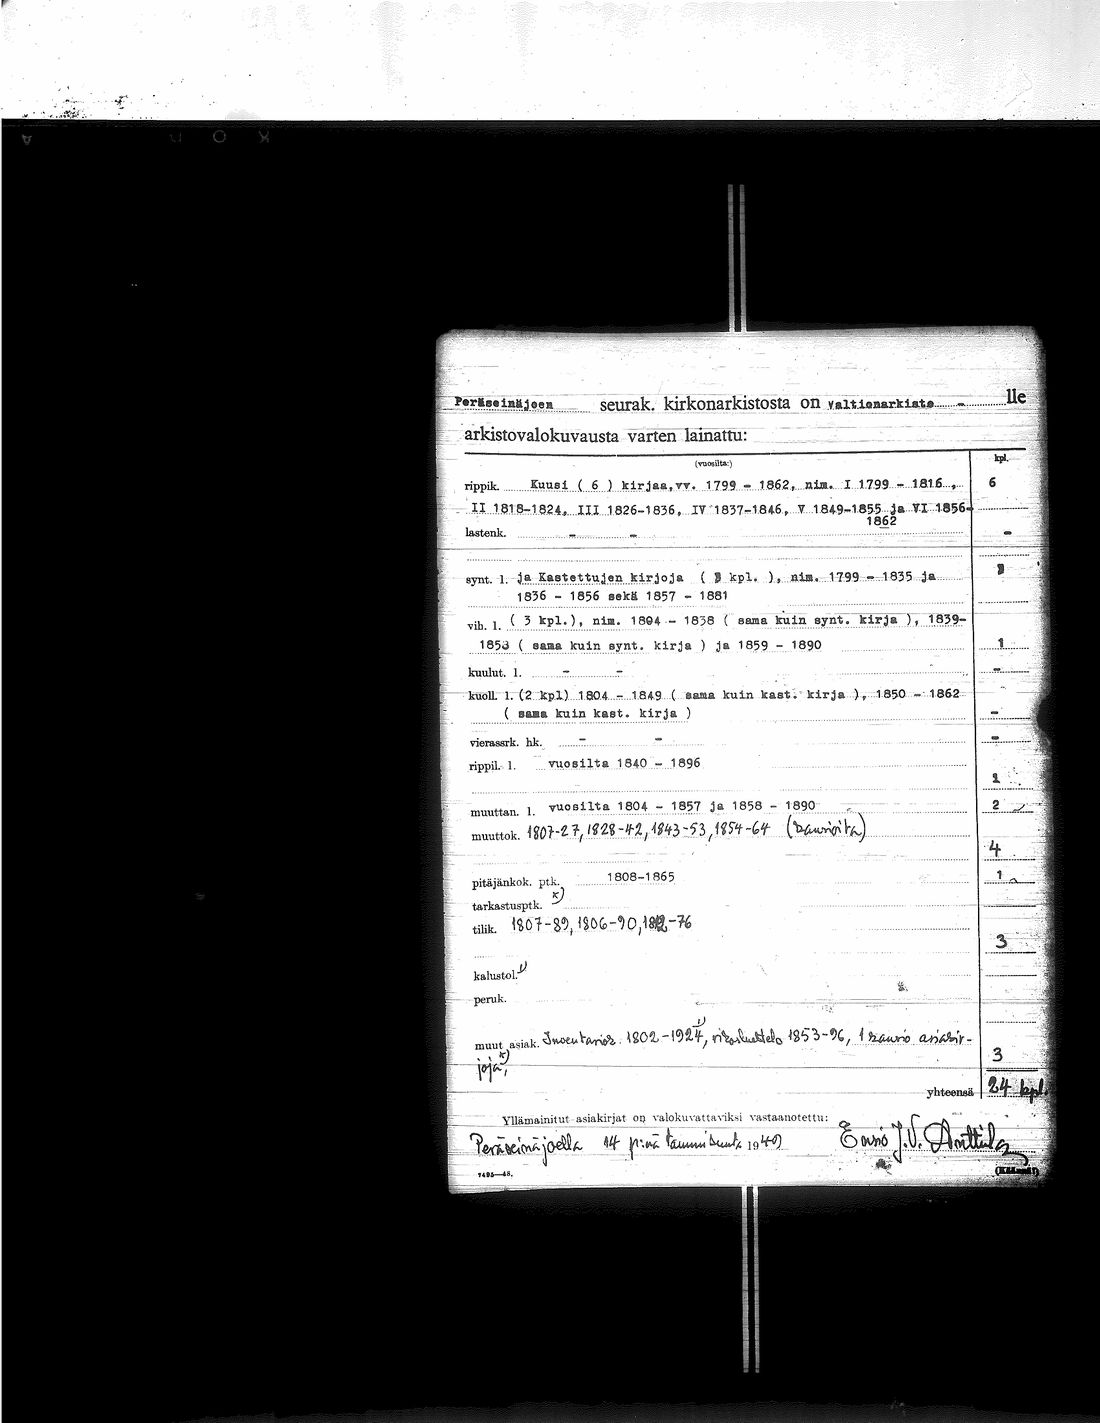 Peräseinäjoen seurak. kirkonarkistosta on Valtionarkisto - lle
arkistovalokuvausta varten lainattu:
(vuosilta:) kpl.
rippik. Kuusi ( 6 ) kirjaa, vv. 1799 - 1862, nim. I 1799 - 1816, 6
II 1818-1824, III 1826-1836, IV 1837-1846, V 1849-1855 ja VI 1856-
1862
lastenk. - - -
synt. l. ja Kastettujen kirjoja ( kpl. ), nim. 1799 - 1835 ja
1836 - 1856 sekä 1857 - 1881
vih. l. ( 3 kpl.), nim. 1804 - 1838 ( sama kuin synt. kirja ), 1839-
1853 ( sama kuin synt. kirja ) ja 1859 - 1890 1
kuulut. l. - - -
kuoll. l. (2 kpl) 1804 - 1849 ( sama kuin kast. kirja ), 1850 - 1862
( sama kuin kast. kirja ) -
vierassrk. hk. - - -
rippil. l. vuosilta 1840 - 1896
1
muuttan. l. vuosilta 1804 - 1857 ja 1858 - 1890 2
muuttok. 1807-27, 1828-42, 1843-53, 1854-64
4
pitäjänkok. ptk. 1808-1865 1
tarkastusptk. x)
tilik. 1807-89, 1806-90, -76
3
kalustol. 1)
peruk.
muut asiak. 1802-1924, 1853-96, 1 asiakir-
joja, 3
yhteensä 24 kpl.
Yllämainitut asiakirjat on valokuvattaviksi vastaanotettu:
Peräseinäjoella 14 p:nä tammikuuta 1949 J.V. Anttila
7495—48.